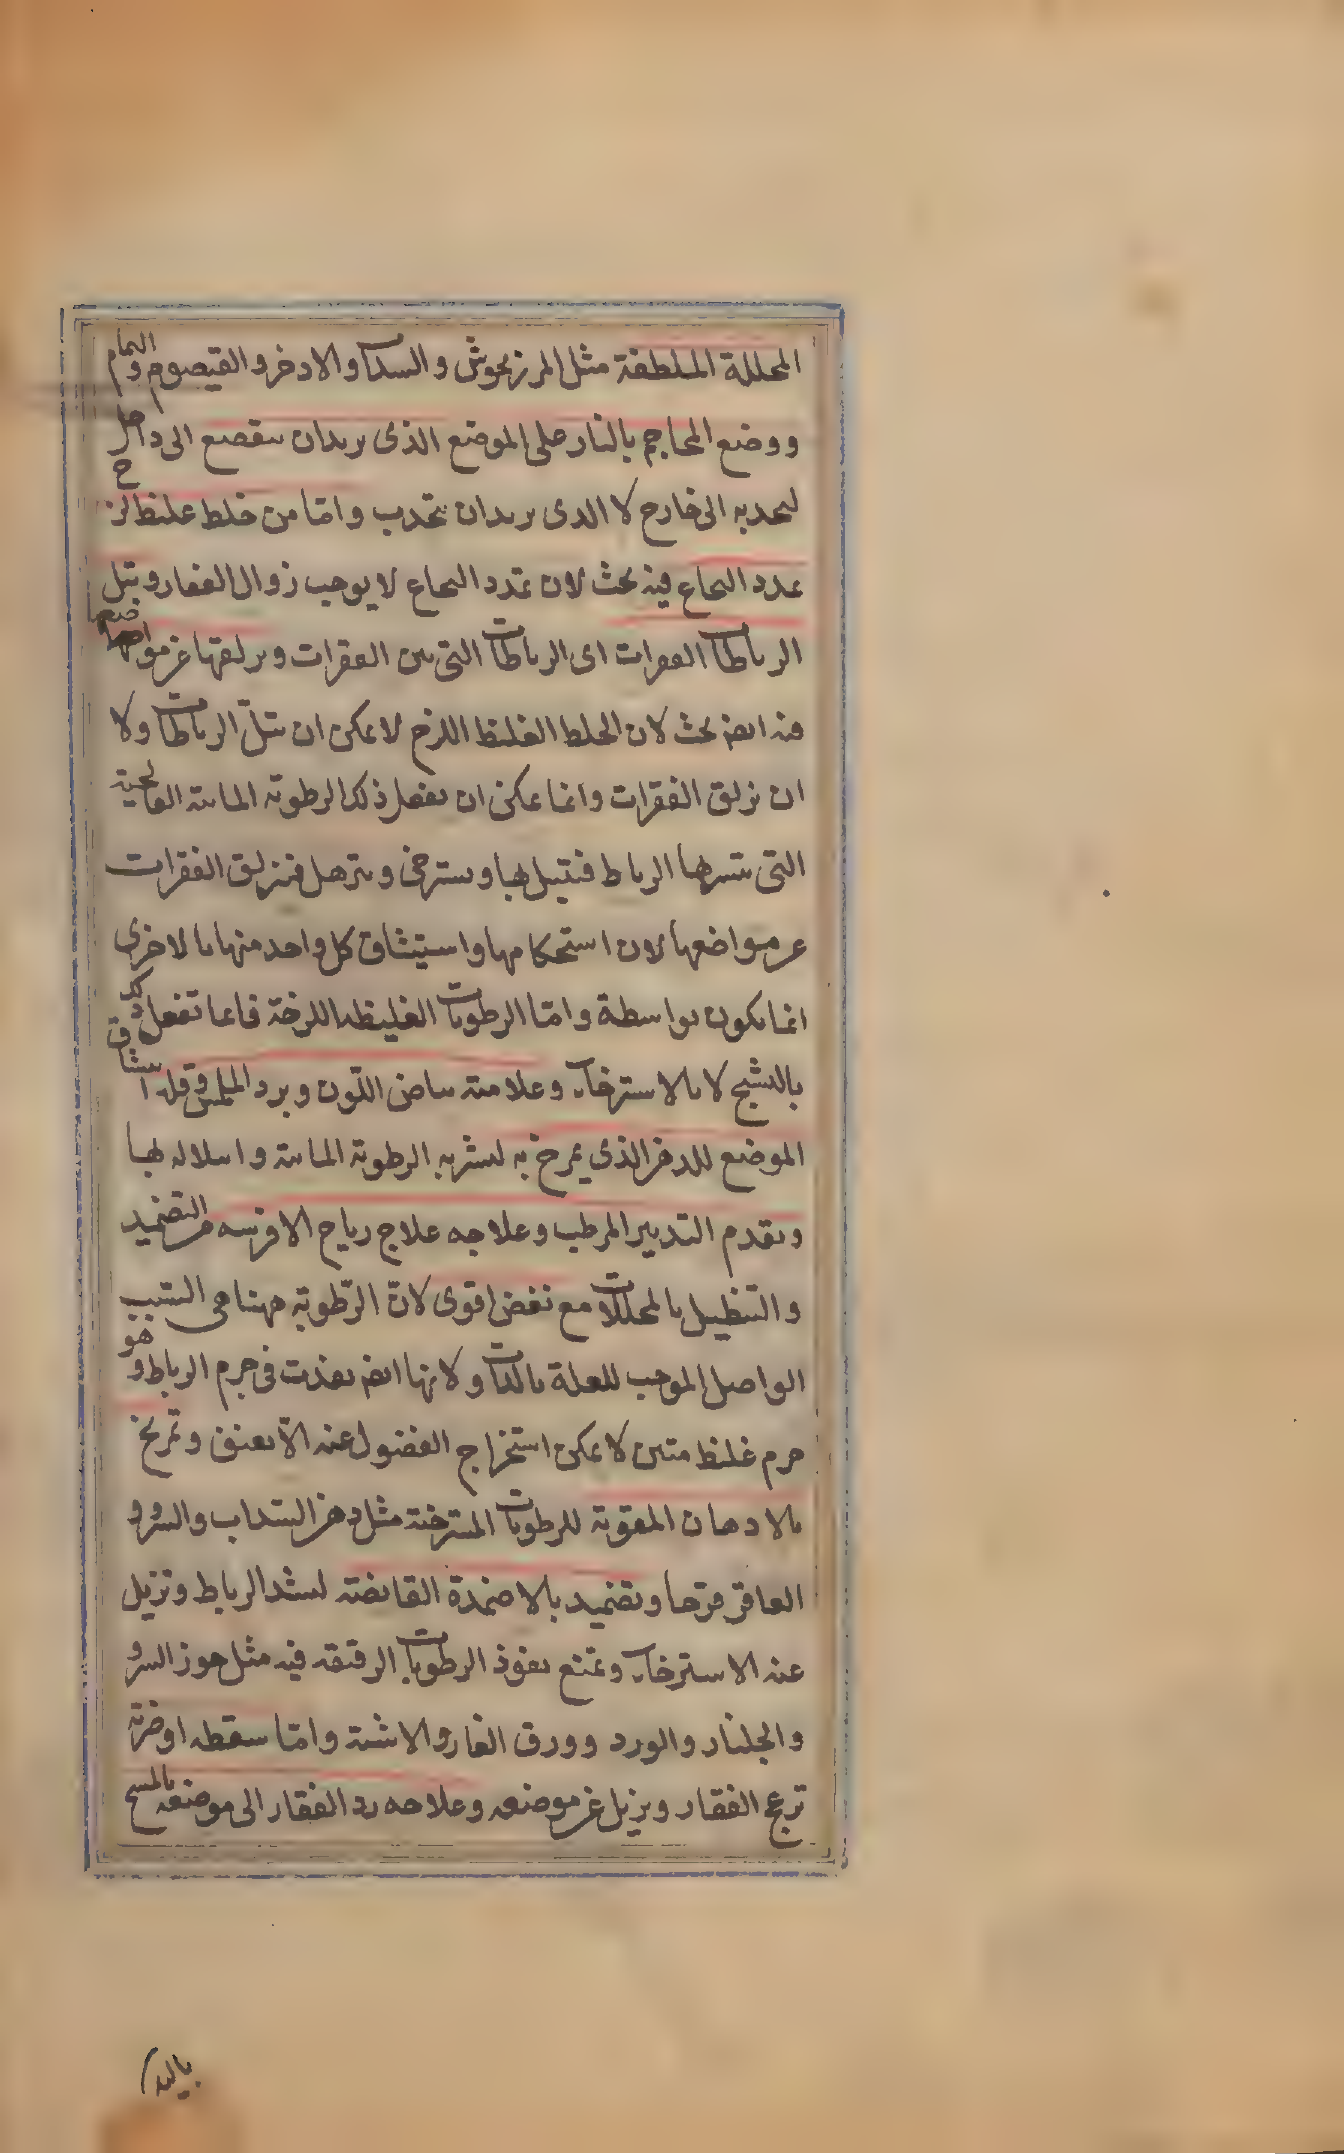 المحللة الملطفة مثل المرزنجوش والسداب والاذخر والقيصوم والنمام
ووضع المحاجم بالنار على الموضع الذى يريدان يتقصع الى داخل
ليجدبه الى خارج لا الدى يريدان يتحدب واما من خلط غليظ لزج
يمدد النخاع فيه بحث لان تمدد النخاع لا يوجب زوال الفقار ويبل
الرباطات الفقرات اى الرباطات التى بين الفقرات ويزلقها عن مواضعها
فيه ايضا بحث لان الخلط الغليظ اللزج لا يمكن ان يبلّ الرباطات ولا
ان يزلق الفقرات وانما يمكن ان يفعل ذلك الرطوبة المائية الفالجية
التى يتشربها الرباط فيبتل بها ويسترخى ويترهل فتزلق الفقرات
عن مواضعها لان استحكامها واستيثاق كل واحد منها بالاخرى
انما يكون بواسطة واما الرطوبات الغليظه اللزجة فانما تفعل ذلك
بالتشنج لا بالاسترخاء وعلامته بياض اللون وبرد الملمس وقلة انتشاق
الموضع للدهن الذى يمرخ به لتشربه الرطوبة المائية وابتلاله بها
وتقدم التدبير المرطب وعلاجه علاج رياح الافرسه من التضميد
والتنظيل بالمحللات مع نفض اقوى لانّ الرّطوبة ههنا هى السّبب
الواصل الموجب للعلة بالذات ولانها ايضا نفذت فى جرم الرباط وهو
جرم غليظ متين لا يمكن استخراج الفضول عنه الّا بعنف وتمريخ
بالادهان المقوية للرطوبات المسترخية مثل دهن السّداب والسرو و
العاقر قرحا وتضميد بالاضمدة القابضة ليشد الرباط وتزيل
عنه الاسترخاء وتمنع نفوذ الرطوبات الرقيقه فيه مثل جوز السرو
والجلنار والورد وورق الغار والاشنة واما سقطه او ضربة
تزعج الفقار ويزيل عن موضعه وعلاجه رد الفقار الى موضعه بالمسح
باليد